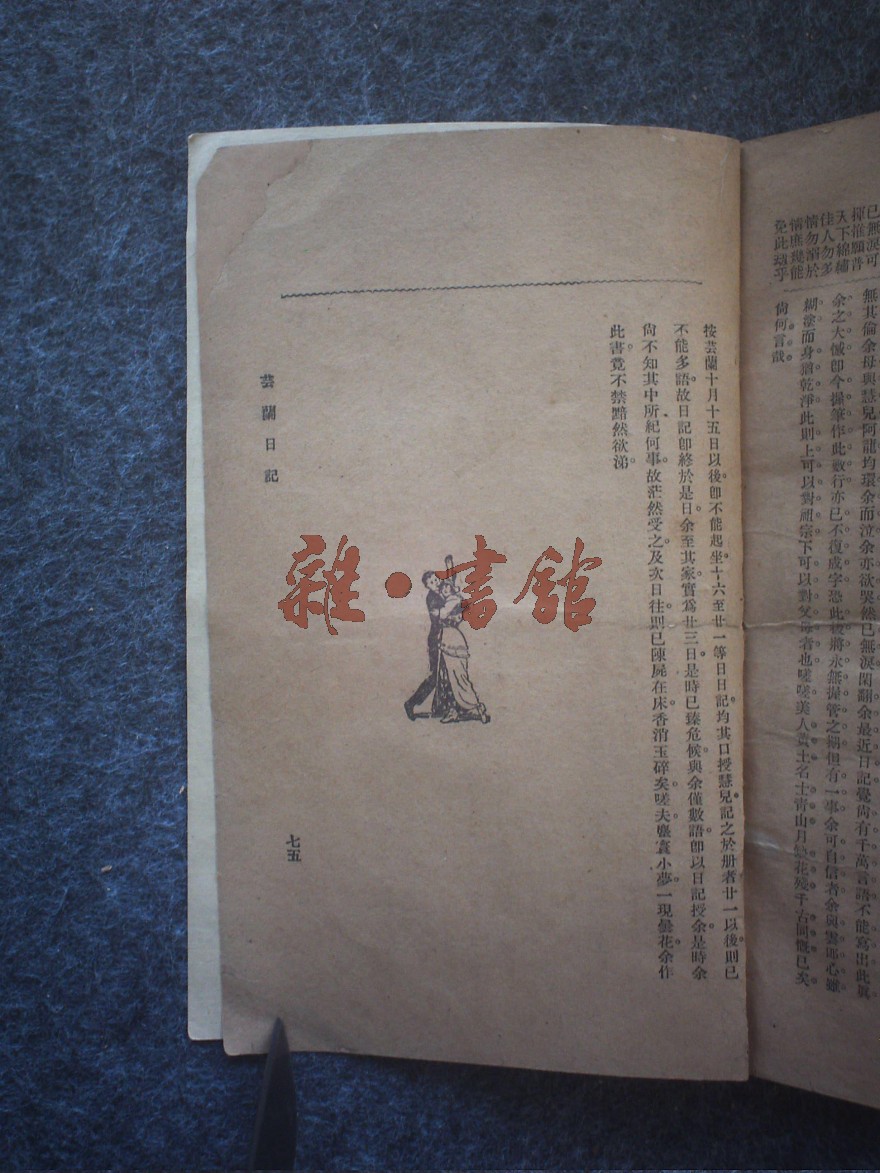 已無淚可
揮惟願普
天下綿繡
佳人勿多
情勿溺於
情庶幾能
免此劫乎
無其倫余母與慧兒阿龍均環余而泣余亦欲哭然已無淚閑翻余最近日記覺尙有千萬言語不能寫出此眞
余之大憾卽今握筆作此數行亦已不復成字恐此後將永無握管之期但有一事余可自信者余與雲郎心雖
糊塗而身體乾淨此則上可以對祖宗下可以對父母者也嗟嗟美人黃土名士靑山月缺花殘千古同慨已矣
尙何言哉。
按芸蘭十月十五日以後卽不能起坐十六至廿一等日日記均其口授慧兒記之於册者廿一以後則已
不能多語。故日記卽終於是日。余至其家實爲廿三日是時已臻危候。與余僅數語。卽以日記授余。是時余
尙不知其中所紀何事。故茫然受之。及次日往。則已陳屍在床。香消玉碎矣。嗟夫。黁囊小夢。一現曇花。余作
此書。竟不禁黯然欲涕。
芸蘭日記
七五
雜·書館